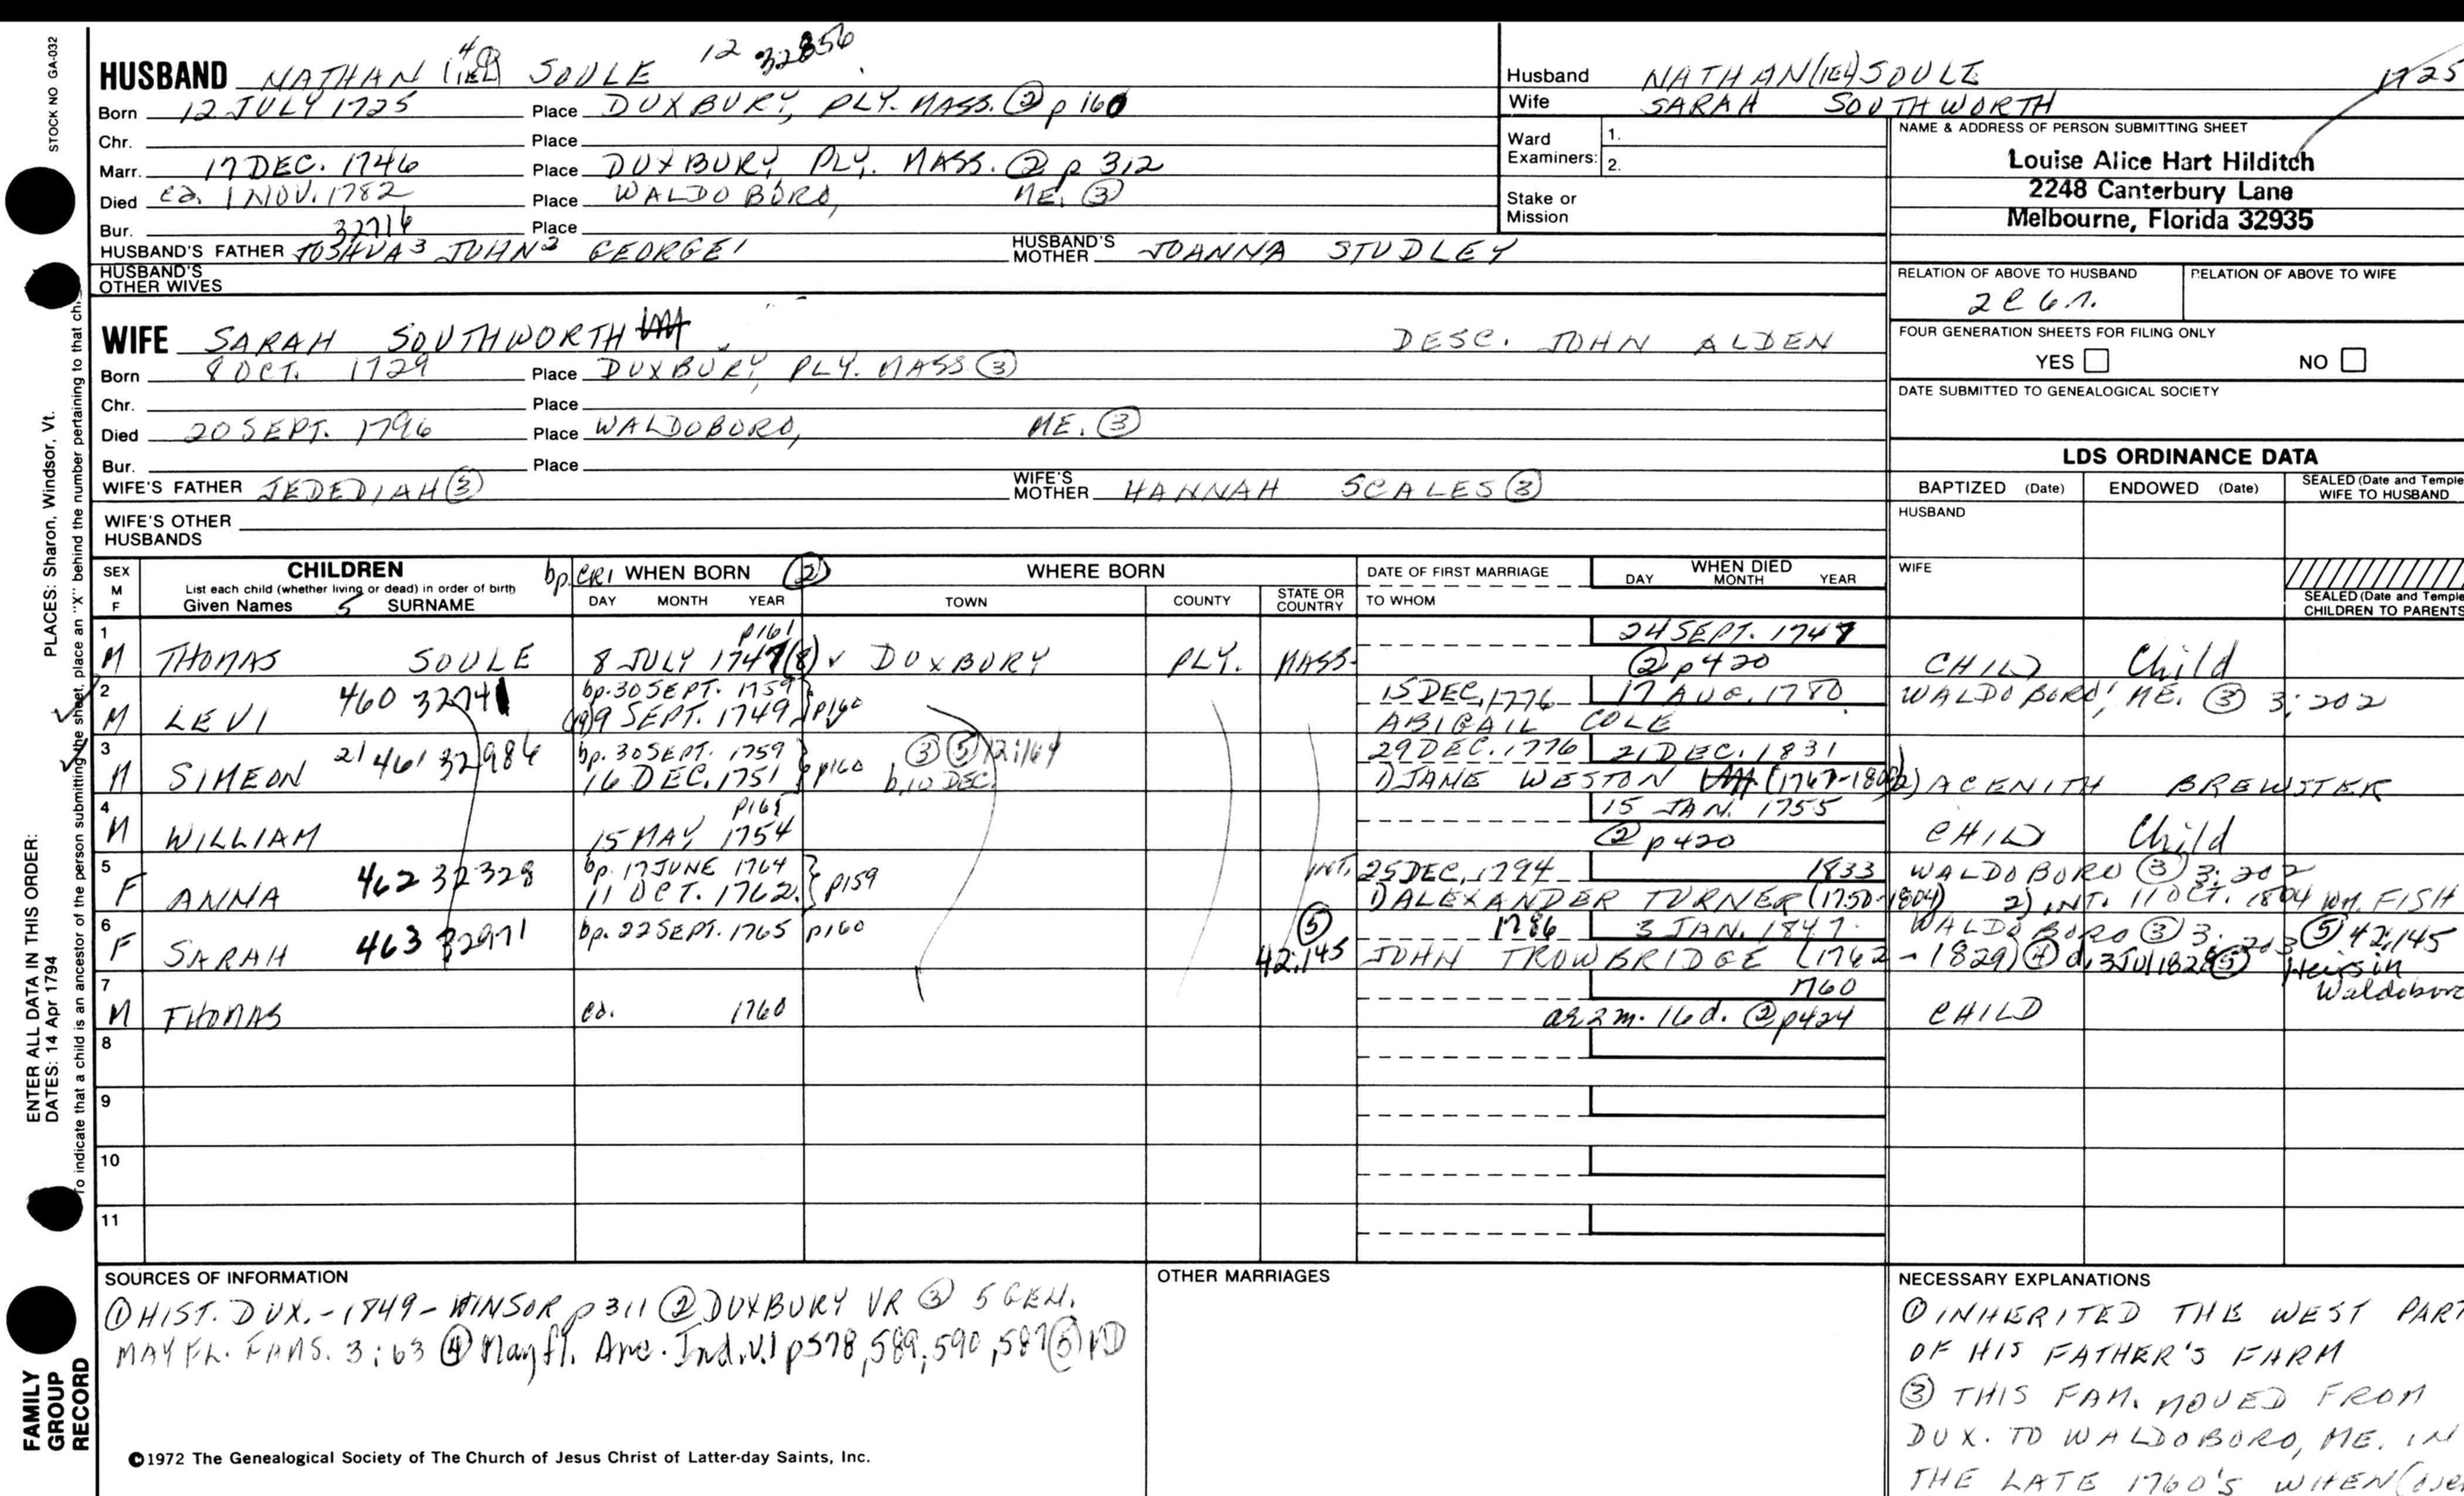 STOCK NO GA-032
PLACES: Sharon, Windsor, Vt.
ENTER ALL DATA IN THIS ORDER:
DATES: 14 Apr 1794
To indicate that a child is an ancestor of the person submitting the sheet, place an "X" behind the number pertaining to that
FAMILY
GROUP
RECORD
HUSBAND NATHAN (IEL) SOULE 12 32856
4
Born 12 JULY 1725 Place DUXBURY, PLY. MASS. ② p 160
Chr. Place
Marr. 17 DEC. 1746 Place DUXBURY, PLY. MASS. ② p 312
Died ca. 1 NOV. 1782 Place WALDOBORO, ME. ③
Bur. 32716 Place
HUSBAND'S FATHER JOSHUA³ JOHN² GEORGE¹ HUSBAND'S MOTHER JOANNA STUDLEY
HUSBAND'S
OTHER WIVES
WIFE SARAH SOUTHWORTH DESC. JOHN ALDEN
Born 8 OCT. 1729 Place DUXBURY, PLY. MASS ③
Chr. Place
Died 20 SEPT. 1796 Place WALDOBORO, ME. ③
Bur. Place
WIFE'S FATHER JEDEDIAH ③ WIFE'S MOTHER HANNAH SCALES ③
WIFE'S OTHER
HUSBANDS
Husband NATHAN(IEL) SOULE 1725
Wife SARAH SOUTHWORTH
Ward
Examiners: 1.
2.
Stake or
Mission
NAME & ADDRESS OF PERSON SUBMITTING SHEET
Louise Alice Hart Hilditch
2248 Canterbury Lane
Melbourne, Florida 32935
RELATION OF ABOVE TO HUSBAND RELATION OF ABOVE TO WIFE
2C 6r.
FOUR GENERATION SHEETS FOR FILING ONLY
YES NO
DATE SUBMITTED TO GENEALOGICAL SOCIETY
LDS ORDINANCE DATA
BAPTIZED (Date) ENDOWED (Date) SEALED (Date and Temple
WIFE TO HUSBAND
HUSBAND
WIFE
SEALED (Date and Temple
CHILDREN TO PARENTS
SEX
M
F
CHILDREN
List each child (whether living or dead) in order of birth
Given Names 5 SURNAME
bp. CR1 WHEN BORN ②
DAY MONTH YEAR
WHERE BORN
TOWN COUNTY STATE OR COUNTRY
DATE OF FIRST MARRIAGE
TO WHOM
WHEN DIED
DAY MONTH YEAR
1 p161 24 SEPT. 1747
M THOMAS SOULE 8 JULY 1747(8) v DUXBURY PLY. MASS. ② p420 CHILD Child
2 460 32741 bp. 30 SEPT. 1759 15 DEC, 1776 17 AUG. 1780 WALDOBORO, ME. ③ 3:202
M LEVI 9 SEPT. 1749 p160 ABIGAIL COLE
3 21 461 32986 bp. 30 SEPT. 1759 ③ ⑤ 12:164 29 DEC. 1776 21 DEC. 1831
M SIMEON 16 DEC. 1751 p160 b. 10 DEC. 1) JANE WESTON 2) ACENITH BREWSTER
4 p161 15 JAN. 1755
M WILLIAM 15 MAY 1754 ② p420 CHILD Child
5 462 32328 bp. 17 JUNE 1764 INT. 25 DEC, 1794 1833 WALDOBORO ③ 3:202
F ANNA 11 OCT. 1762 p159 1) ALEXANDER TURNER (1750-1804) 2) INT. 11 OCT. 1804 WM. FISH
6 463 32971 bp. 22 SEPT. 1765 p160 ⑤ 1786 3 JAN. 1847 WALDOBORO ③ 3:203 ⑤ 42:145
F SARAH 42:145 JOHN TROWBRIDGE (1762-1829) ④ d. 3 Jul 1828 ⑤ Heirs in
Waldoboro
7 1760
M THOMAS ca. 1760 ae 2 m. 16 d. ② p424 CHILD
8
9
10
11
SOURCES OF INFORMATION
① HIST. DUX. - 1849 - WINSOR p 311 ② DUXBURY VR ③ 5 GEN.
MAYFL. FAMS. 3:63 ④ Mayfl. Anc. Ind. V.1 p578, 589, 590, 587 ⑤ MD
OTHER MARRIAGES
NECESSARY EXPLANATIONS
① INHERITED THE WEST PART
OF HIS FATHER'S FARM
③ THIS FAM. MOVED FROM
DUX. TO WALDOBORO, ME. IN
THE LATE 1760'S WHEN
©1972 The Genealogical Society of The Church of Jesus Christ of Latter-day Saints, Inc.